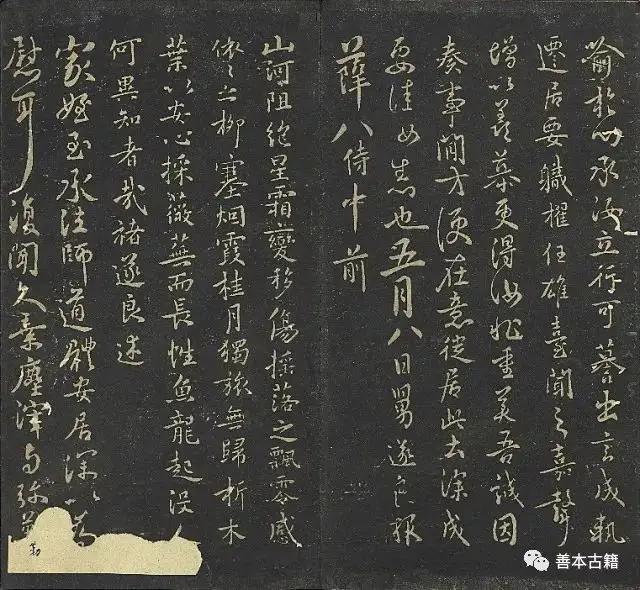 喻於 承汝立行可慕出言成軌
遷居要職擢任雄臺聞之嘉聲
增以羨慕更得汝 重美吾誠因
奏事閒方便在意從居此去深成
要佳 志也五月八日舅遂良報
薛八侍中前
山河阻絕星霜變移傷搖落之飄零感
依依之柳塞烟霞桂月獨旅無歸折木
葉以安心採薇蕪而長性魚龍起沒人
何異知者哉褚遂良述
家姪至承法師道體安居深以為
慰耳復聞久棄塵滓与弥
善本古籍